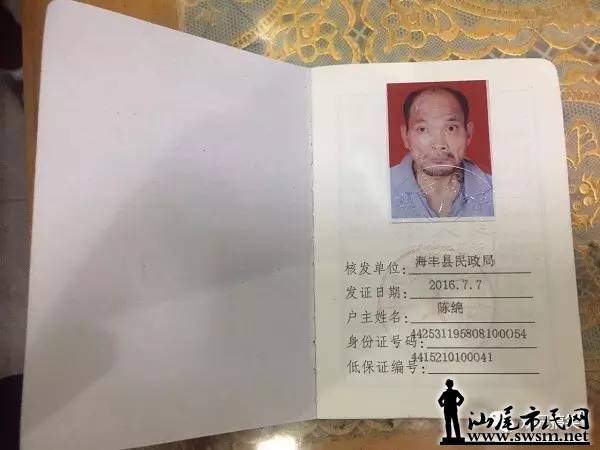 核发单位：海丰县民政局
发证日期：2016.7.7
户主姓名：陈绵
身份证号码：442531195808100054
低保证编号：4415210100041
汕尾市民网
www.swsm.net